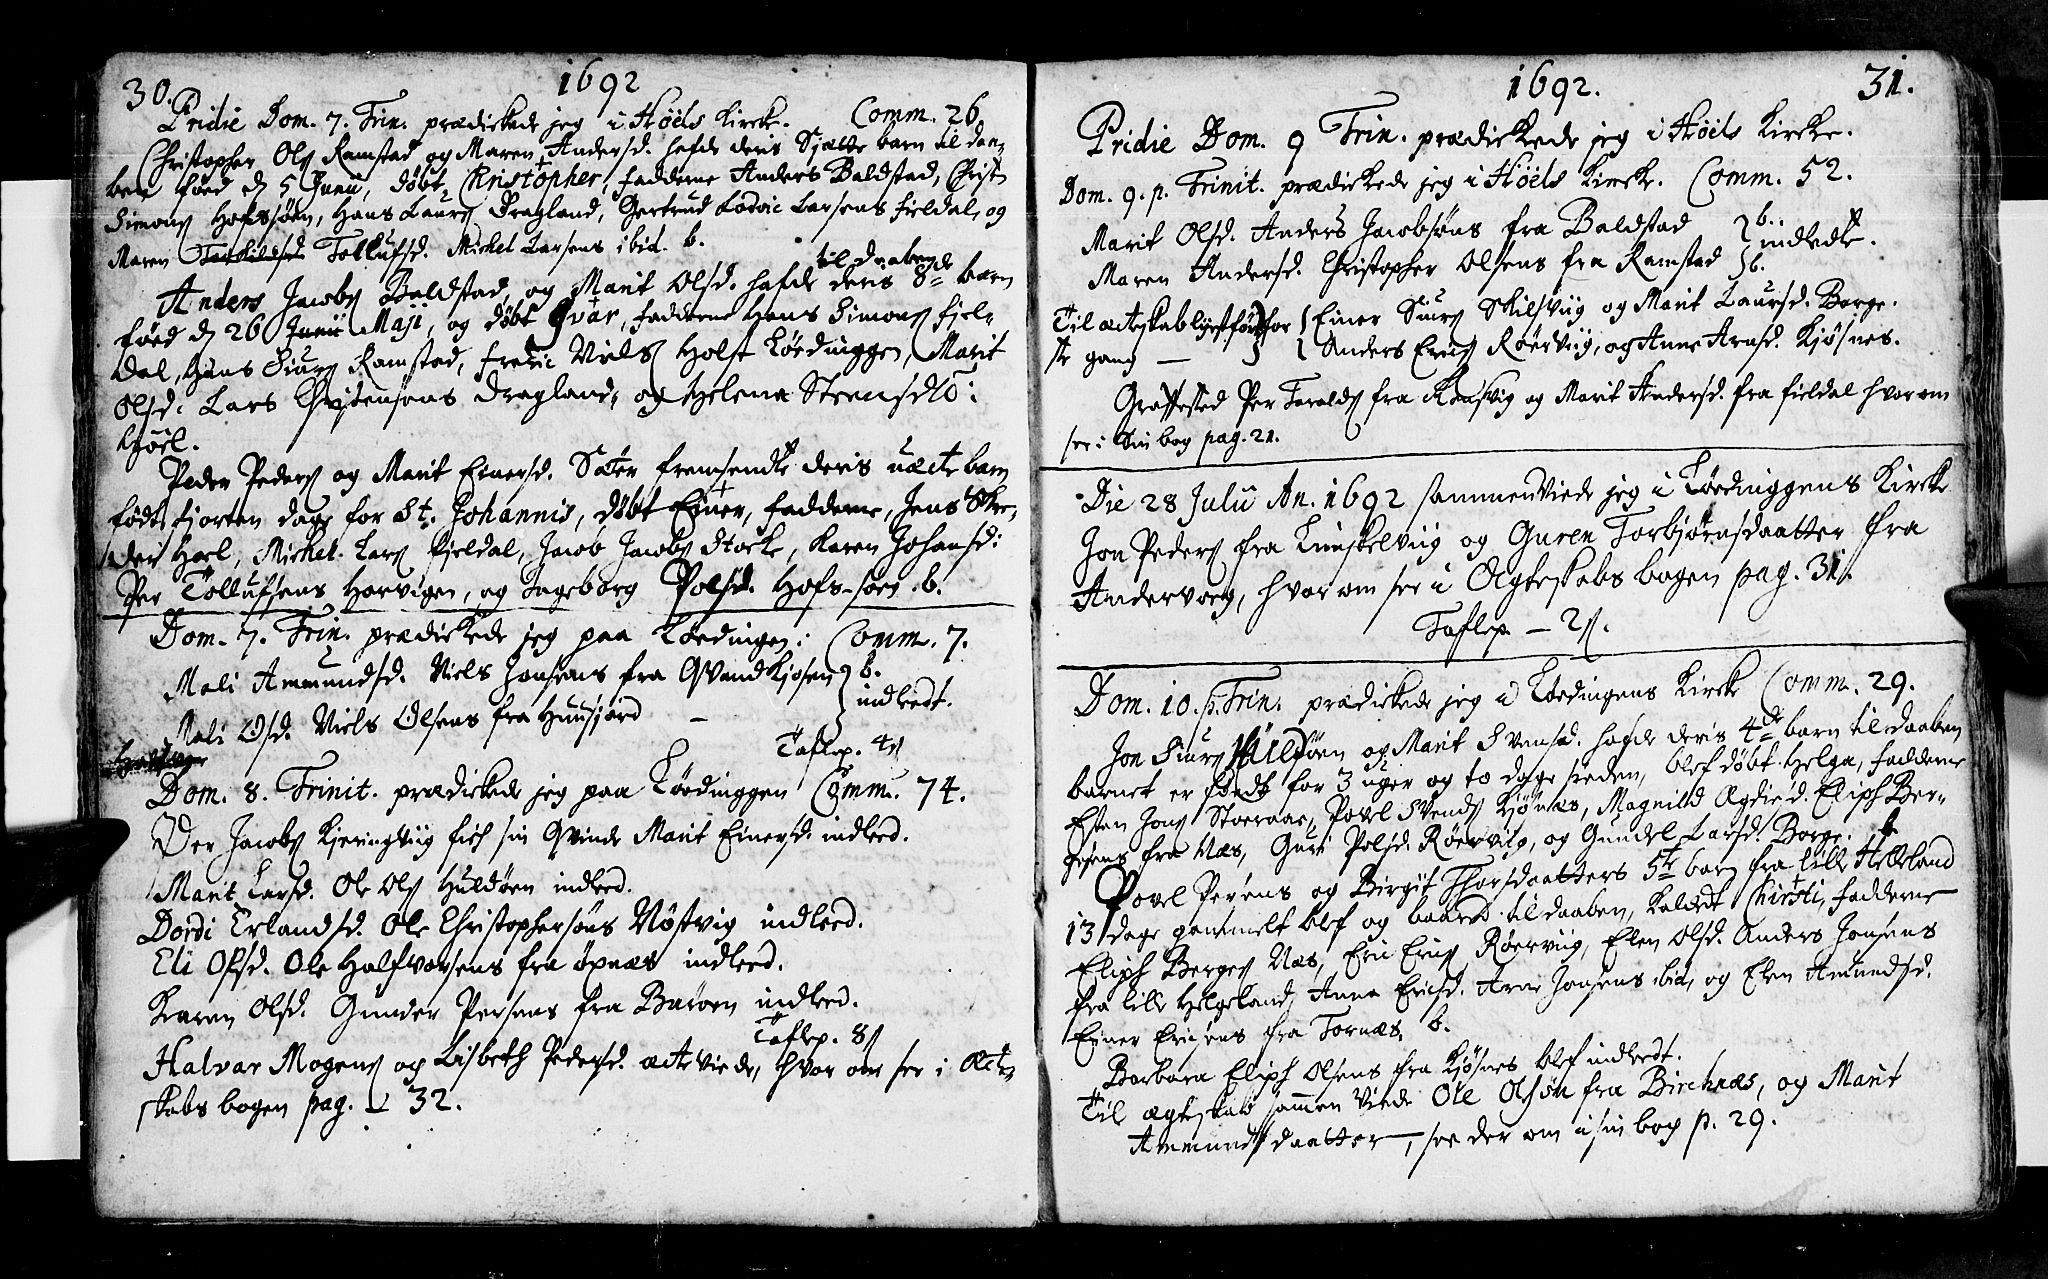 30. 1692
Pridie Dom. 7. Trin. prædickede jeg i Höels Kircke. Comm. 26.
Christopher Ols Ramstad og Maren Andersd. hafde deris Siætte barn til daa-
ben föed d 5 Junii, döbt, Christopher, fadderne Anders Baldstad, Christ
Simons Hofssöen, Hans Laurs Dragland, Gertrud Lodvic Larsens Fieldal, og
Maren Tollufsd. Michel Larsens ibid. b.
til Daaben
Anders Jacobs Baldstad, og Marit Olsd. hafde deris 8de barn
föed d 26 Junii Maji, og döbt Ivar, fadderne Hans Simons fiel-
dal, Hans Siurs Ramstad, Fredric Niels Holst Löedinggen, Marit
Olsd. Lars Christensöns Dragland, og Helena Stensdtr:
Höel.
Peder Peders og Marit Einersd. Sæter fremsendte deris uæcte barn
födt fjorten dage for St. Johannis, döbt Einer, fadderne, Jens
Hoel, Michel Lars fieldal, Jacob Jacobs Stocke, Karen Johansd:
Per Tollufsens Horvigen, og Ingeborg Polsd. Hofs-söen. b.
Dom. 7. Trin. prædickede jeg paa Löedingen: Comm. 7.
Mali Ammundsd. Niels Jonsens fra Qvandkjosen } b.
Mali Olsd. Niels Olsens fra Huusjord — } indleedt.
Taflep. 4 s
Dom. 8. Trinit. prædickede jeg paa Löedinggen Comm. 74.
Per Jacobs Kjeringviig fich sin Qvinde Marit Einersd. indleed.
Marit Larsd. Ole Ols Huldöen indleed.
Dordi Erlandsd. Ole Christophersöns Nöstvig indleed.
Eli Olsd. Ole Halfvorsens fra öxnæs indleed.
Karen Olsd. Gunder Persens fra Baröen indleed.
Taflep. 8 s
Halvar Mogens og Lisbeth Pedersd. æcteviede, hvor om see i Ecte-
skabs bogen pag. 32.
1692. 31.
Pridie Dom. 9 Trin. prædickede jeg i Höels Kircke.
Dom. 9. p. Trinit. prædickede jeg i Höels Kircke. Comm. 52.
Marit Olsd. Anders Jacobsöns fra Baldstad } b.
Maren Andersd. Christopher Olsens fra Ramstad } b. indledte.
Til æcteskab lyst för- } for { Einer Siurs Skilsviig og Marit Laursd. Borge.
ste gang — } { Anders Erics Röerviig, og Anne Arnsd. Kjösnes.
Graffested Per Taralds fra og Marit Andersd. fra fieldal hvor om
see i Sin bog pag. 21.
Die 28 Julii An. 1692 sammenviede jeg i Löedinggens Kircke
Jon Peders fra og Guren Torbjörnsdaatter fra
Andervaag, hvor om see i Ægteskabs bogen pag. 31.
Taflep. — 2 s.
Dom. 10. p. Trin. prædickede jeg i Löedingens Kircke Comm. 29.
Jon Siurs Huldöen og Marit Svensd. hafde deris 4de barn til daaben
barnet er födt for 3 uger og to dage sieden, blef döbt Helga, fadderne
Esten Jons Storaae, Povel Svends Kjönæs, Magnild Ægdied. Eliph Ber-
gesens fra Næs, Guri Polsd. Röervig, og Gundel Larsd. Borge. b.
Povel Persens og Birgit Thorsdaatters 5te barn fra lille Helleland
13 dage gammelt blef og baaret til daaben, kaldet Chirsti, fadderne
Eliph Berges Næs, Eric Erics Röerviig, Elen Olsd. Anders Jonsens
fra lille Helgeland, Anna Ericsd. Arne Jonsens ibid, og Elen Amundsd.
Einer Ericsens fra Tornæs. b.
Barbara Eliph Olsens fra Kjösnes blef indleedt.
Til ægteskab sammen viede Ole Olsön fra Birchnæs, og Marit
Ammundsdaatter —, see der om i sin bog p. 29.